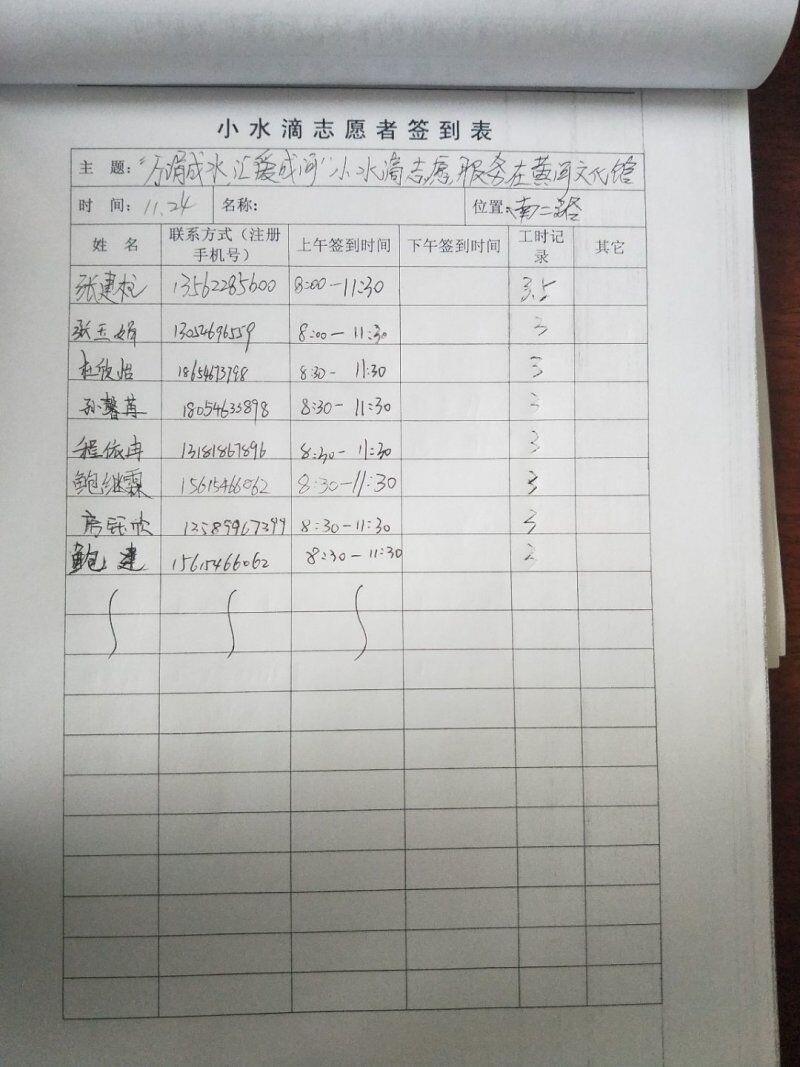 小水滴志愿者签到表
主 题：“万涓成水，汇爱成河”小水滴志愿服务在黄河文化馆
时 间：11.24 名称： 位置：南二路
姓 名 联系方式（注册手机号） 上午签到时间 下午签到时间 工时记录 其它
张建 13562285600 8:00-11:30 3.5
张玉娟 13054696559 8:00-11:30 3
杜欣怡 18654673798 8:30-11:30 3
孙馨苒 18054633898 8:30-11:30 3
程依冉 13181867896 8:30-11:30 3
鲍继霖 15615466062 8:30-11:30 3
房钰欣 13589967399 8:30-11:30 3
鲍建 15615466062 8:30-11:30